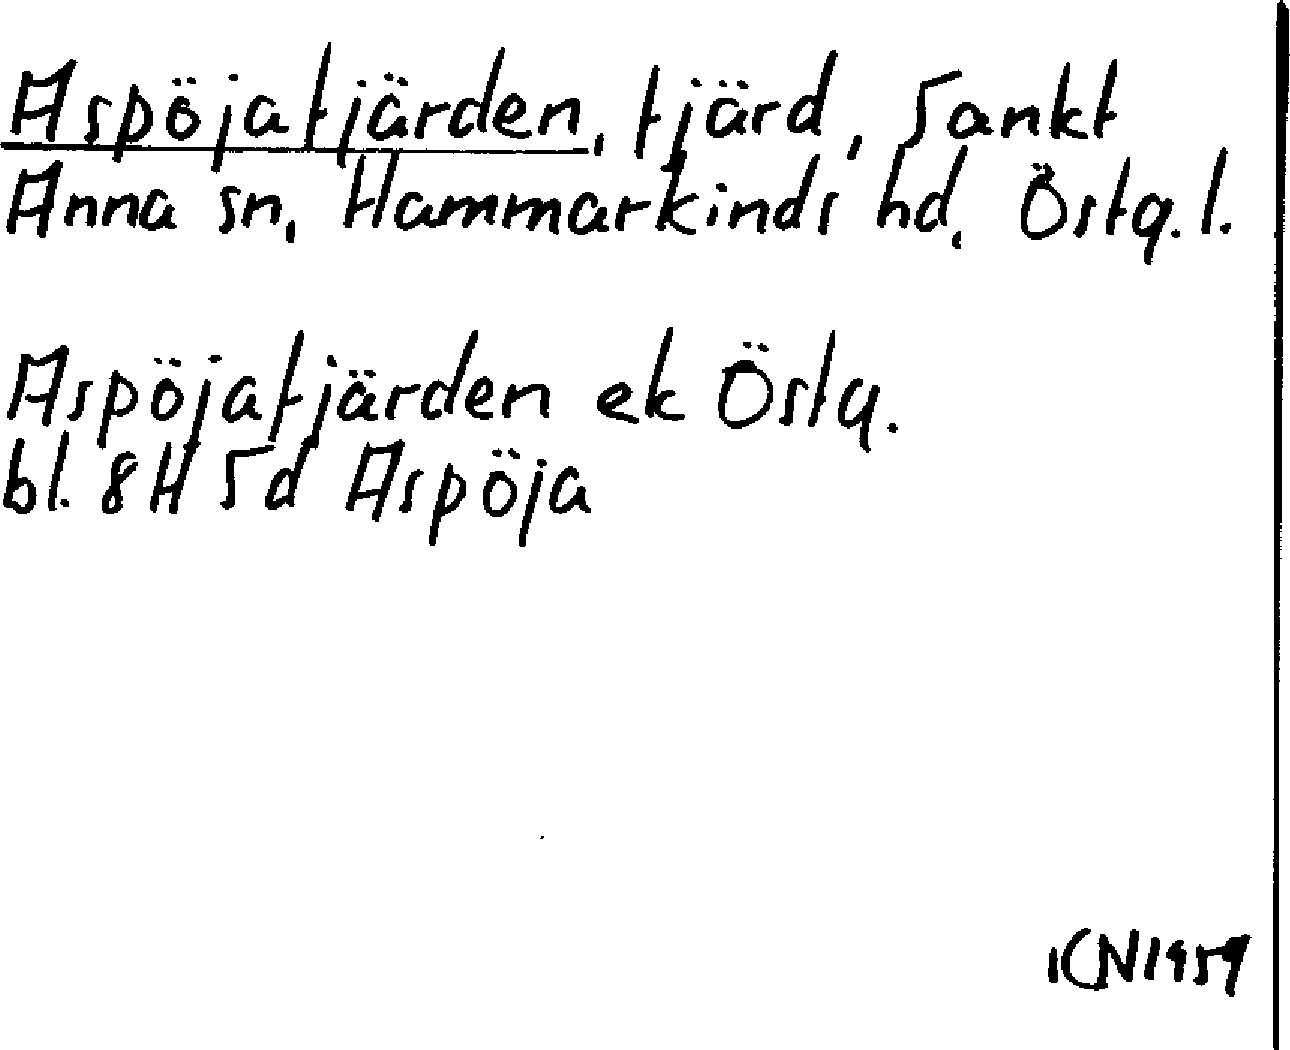 Aspöjafjärden, fjärd, Sankt
Anna sn, Hammarkinds hd, Östg. l.
Aspöjafjärden ek Östg.
bl. 8H 5d Aspöja
KN 1959